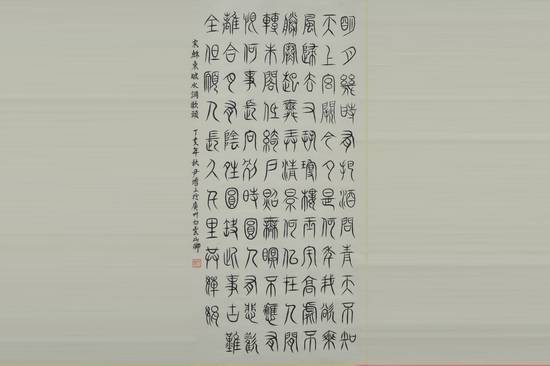 明月幾時有把酒問青天不知
天上宮闕今夕是何年我欲乘
風歸去又恐瓊樓玉宇高處不
勝寒起舞弄清影何似在人間
轉朱閣低綺戶照無眠不應有
恨何事長向別時圓人有悲歡
離合月有陰晴圓缺此事古難
全但願人長久千里共嬋娟
宋蘇東坡水調歌頭
丁亥年秋尹 於廣州白雲山